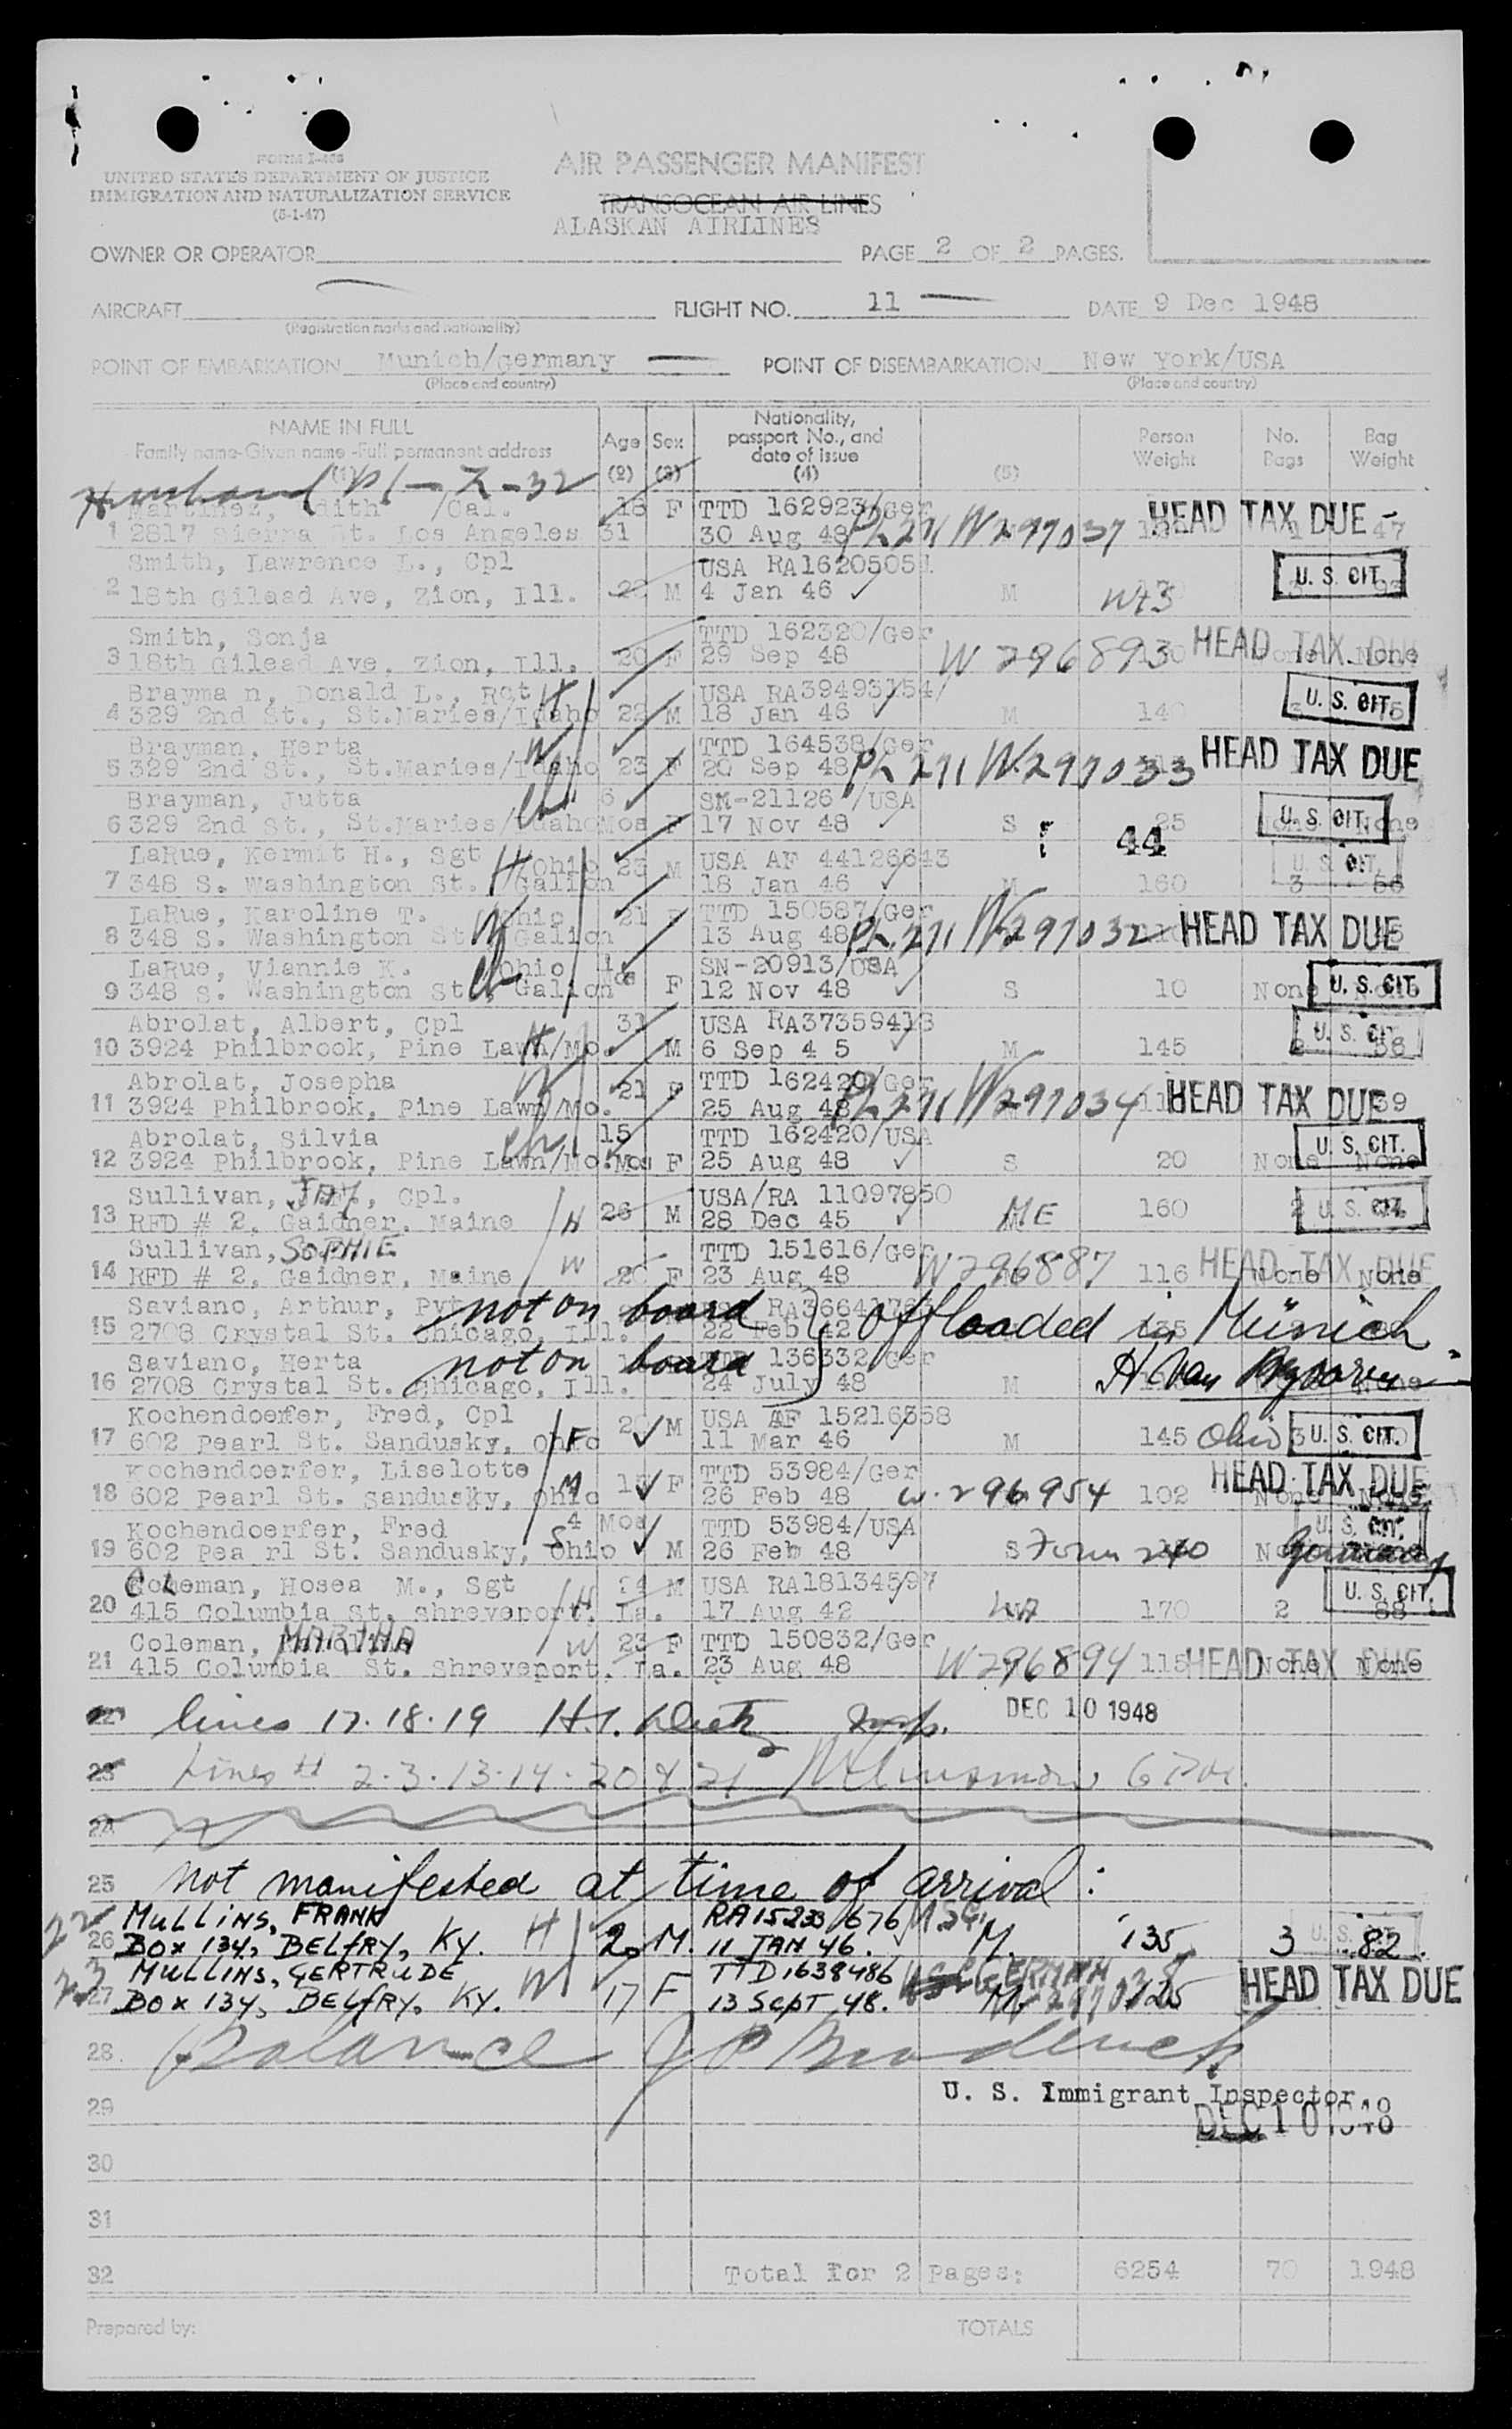 FORM I-466
UNITED STATES DEPARTMENT OF JUSTICE
IMMIGRATION AND NATURALIZATION SERVICE
(5-1-47)
AIR PASSENGER MANIFEST
TRANSOCEAN AIR LINES
ALASKAN AIRLINES
OWNER OR OPERATOR
PAGE 2 OF 2 PAGES.
AIRCRAFT
(Registration marks and nationality)
FLIGHT NO. 11
DATE 9 Dec 1948
POINT OF EMBARKATION Munich/germany
(Place and country)
POINT OF DISEMBARKATION New York/USA
(Place and country)
NAME IN FULL
Family name-Given name-Full permanent address
(1)
Age
(2)
Sex
(3)
Nationality, passport No., and date of issue
(4)
(5)
Person Weight
No. Bags
Bag Weight
Husband P1-Z-32
Martinez, Edith /Cal. 18 F TTD 162923/Ger HEAD TAX DUE
1 2817 Sierra St. Los Angeles 31 30 Aug 48 W297037 1 47
Smith, Lawrence L., Cpl USA RA16205051 U. S. CIT.
2 18th Gilead Ave, Zion, Ill. 22 M 4 Jan 46 M
Smith, Sonja TTD 162320/Ger HEAD TAX DUE
3 18th Gilead Ave, Zion, Ill. 20 F 29 Sep 48 W 296893 None None
Brayma n, Donald L., Rct H USA RA39493154/ U. S. CIT.
4 329 2nd St., St.Maries/Idaho 22 M 18 Jan 46 M 140
Brayman, Herta W TTD 164538/Ger HEAD TAX DUE
5 329 2nd St., St.Maries/Idaho 23 F 20 Sep 48 W297033
Brayman, Jutta ch 6 SM-21126 /USA U. S. CIT.
6 329 2nd St., St.Maries/Idaho Mos F 17 Nov 48 S 25 None None
44
LaRue, Kermit H., Sgt H Ohio 23 M USA AF 44126643 U. S. CIT.
7 348 S. Washington St. Galion 18 Jan 46 M 160 3 56
LaRue, Karoline T. W Ohio 21 F TTD 150587/Ger HEAD TAX DUE
8 348 S. Washington St. Galion 13 Aug 48 W297032
LaRue, Viannie K. ch Ohio SN-20913/USA U. S. CIT.
9 348 S. Washington St., Galion Mos F 12 Nov 48 S 10 None None
Abrolat, Albert, Cpl H 31 USA RA37359418 U. S. CIT.
10 3924 Philbrook, Pine Lawn/Mo. M 6 Sep 4 5 M 145 2 56
Abrolat, Josepha W 21 F TTD 162420/Ger HEAD TAX DUE
11 3924 Philbrook, Pine Lawn/Mo. 25 Aug 48 W297034 39
Abrolat, Silvia ch. 15 TTD 162420/USA U. S. CIT.
12 3924 Philbrook, Pine Lawn/Mo. Mos F 25 Aug 48 S 20 None None
Sullivan, JAY, Cpl. USA/RA 11097850 U. S. CIT.
13 RFD # 2, Gaidner, Maine H 26 M 28 Dec 45 ME 160 2
Sullivan, SOPHIE TTD 151616/Ger W 296887 HEAD TAX DUE
14 RFD # 2, Gaidner, Maine W 20 F 23 Aug 48 116 None None
Saviano, Arthur, Pvt not on board offloaded in Münich
15 2708 Crystal St. Chicago, Ill. 22 Feb 42
Saviano, Herta not on board TTD 136332/Ger
16 2708 Crystal St. Chicago, Ill. 24 July 48 M
Kochendoerfer, Fred, Cpl USA AF 15216358 U. S. CIT.
17 602 Pearl St. Sandusky, Ohio F M 11 Mar 46 M 145 Ohio 3
Kochendoerfer, Liselotte TTD 53984/Ger HEAD TAX DUE
18 602 Pearl St. Sandusky, Ohio M F 26 Feb 48 W. 296954 102 None None
Kochendoerfer, Fred 4 Mos TTD 53984/USA U. S. CIT.
19 602 Pea rl St. Sandusky, Ohio S M 26 Feb 48 S Form 240 Germany
Coleman, Hosea M., Sgt H 24 M USA RA18134597 U. S. CIT.
20 415 Columbia St. Shreveport, La. 17 Aug 42 170 2 88
Coleman, MARTHA W 23 F TTD 150832/Ger HEAD TAX DUE
21 415 Columbia St. Shreveport, La. 23 Aug 48 W296894 115 None None
22 lines 17.18.19 Insp. DEC 10 1948
23 Lines # 2.3.13.14.20 & 21
24
25 not manifested at time of arrival:
22 MULLINS, FRANK RA15233676 U. S. CIT.
26 BOX 134, BELFRY, KY. H 20 M. 11 JAN 46. M. 135 3 82
23 MULLINS, GERTRUDE TTD1638486 GERMAN HEAD TAX DUE
27 BOX 134, BELFRY, KY. W 17 F 13 SEPT 48. M 125
28 Balance J P Broderick
U. S. Immigrant Inspector.
29 DEC 10 1948
30
31
32 Total for 2 Pages: 6254 70 1948
Prepared by:
TOTALS